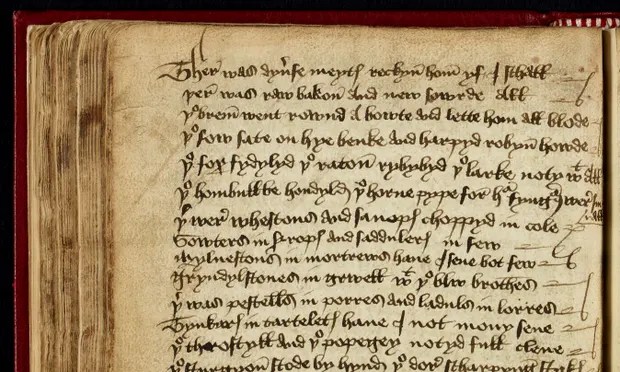 Ther was dyuse meyts rechyn hom yf I schall
þer was raw bakon and new sowrde all
þe brem went rownd a bowte and lette hom all blode
þe sow sate on hye benke and harpyd robyn howde
þe fox fydylyd þe raton rybybyd þe larke notyd wt all
þe hombull be hondyld þe horne pype for hr fyngrs wer small
þr wer whestons and sanops choppyd in cole
Sowters in syrops and saddulers in sew
mylnestons in mortrews haue I sene bot few
Gryndylstones in grwell wt þe blw brothes
þr was pestells in porres and laduls in lorres
Tynkars in tartelets haue I not mony sene
þe throstyll and þe popegey notyd full clene
þe sturgyon stode by hynd þe dor scharpyng styks